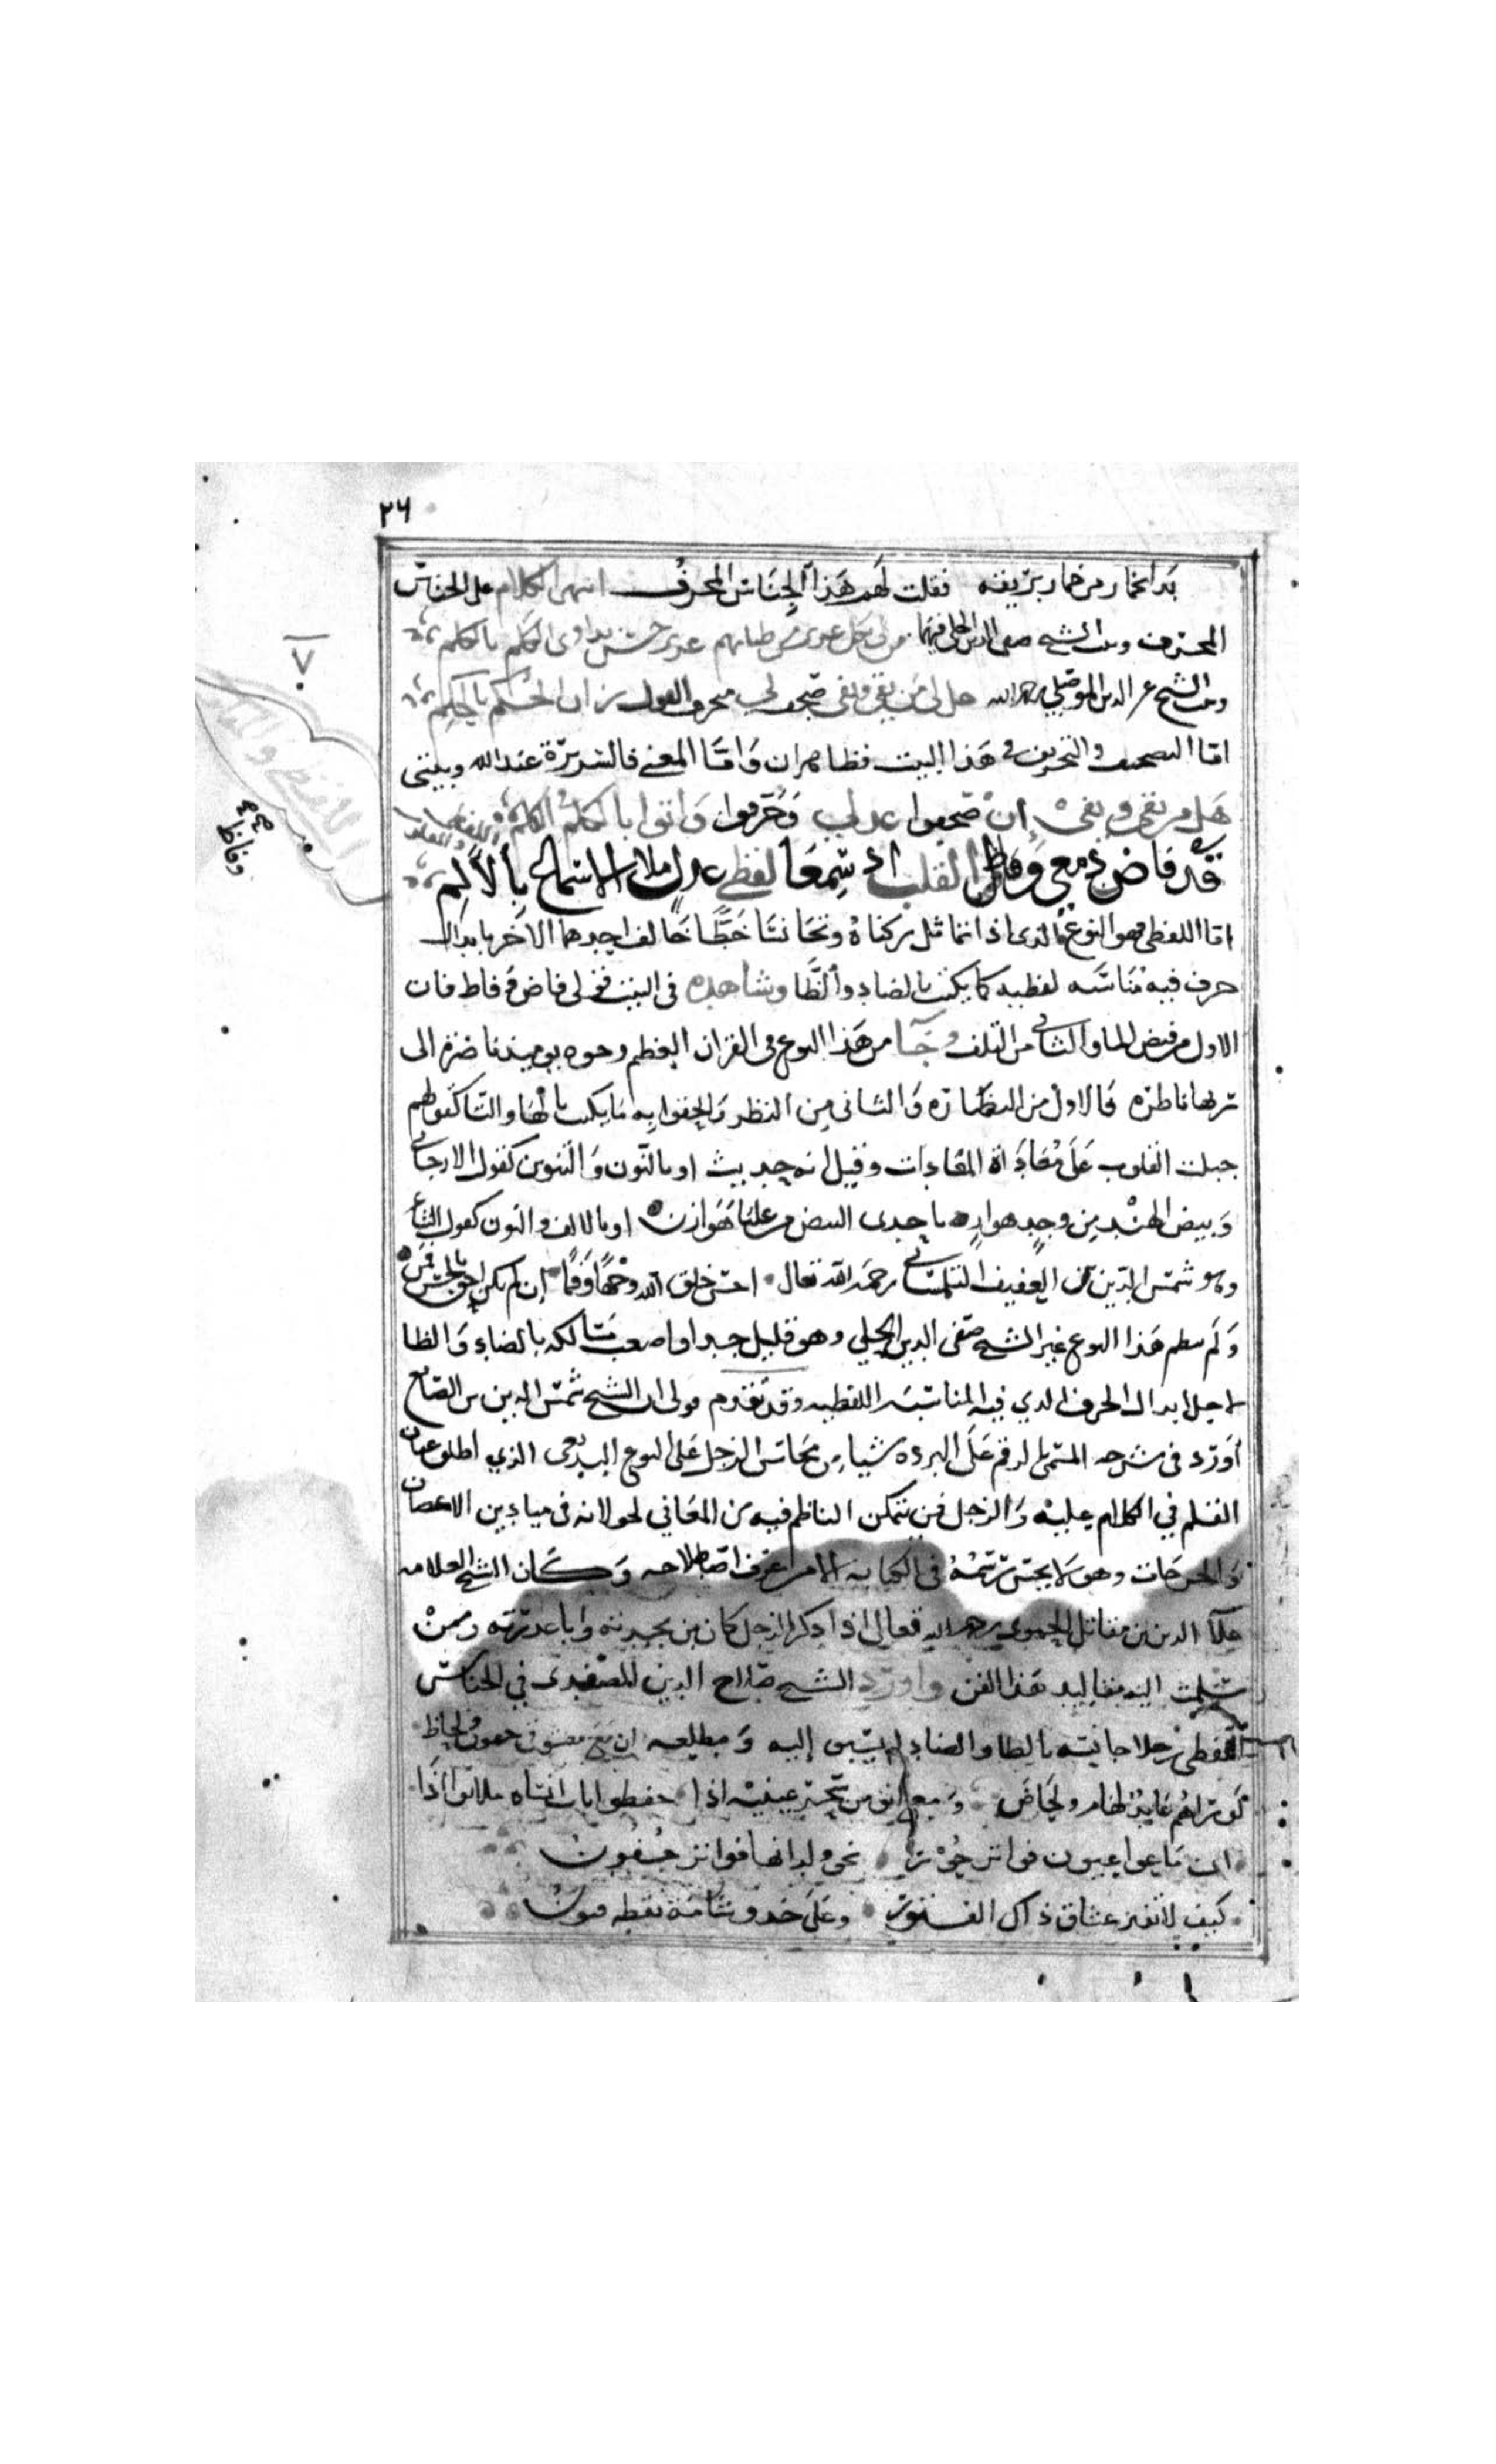 ٢٦
بدا خمار من خمار بريقه فقلت لهم هذا الجناس المحرف انتهى الكلام على الجناس
المحرف وبيت الشيخ صفي الدين الحلي فيهما من لي بكل عرير من ظبائهم عزيز حسن يداوى الكلم بالكلم
وبيت الشيخ عز الدين الموصلي رحمه الله هل لي من يفي صحفوا لي محرف القول زان الحكم بالحكم
اما التصحيف والتحريف في هذا البيت فظاهران واما المعنى فالسريرة عند الله وبيتي
هل من يقي ويفي إن صحفوا عذلي وحرفوا واتوا بالكلم في الكلم
اللفظي والمقلوب
قد فاض دمعي وفاظ القلب اذ سمعا لفظي عذل ملا الاسماع بالألم
اما اللفظي فهو النوع الذي اذا تماثل ركناه وتجانسا خطا خالف احدهما الاخر بابدال
حرف فيه مناسبه لفظيه كما يكتب بالضاد والظا وشاهده في البيت قولى فاض وفاظ فان
الاول من فيض الماء والثاني من التلف وجآ من هذا النوع في القران العظيم وجوه يوميذ ناضرة الى
ربها ناظره فالاول من النضاره والثاني من النظر والحقوا به ما يكتب بالهاء والتا كقولهم
جبلت القلوب على معاداة المعادات وقيل انه حديث او بالنون والتنوين كقول الارجاني
وبيض الهند من وجدي هواز باحدى البيض من عليا هوازن او بالالف والنون كقول الشاعر
وهو شمس الدين بن العفيف التلمساني رحمه الله تعالى احسن خلق الله وجها وفما إن لم يكن احق بالحسن فمن
ولم ينظم هذا النوع غير الشيخ صفي الدين الحلي وهو قليل جدا واصعب مسالكه بالضاد والظا
لاجل ابدال الحرف الذي فيه المناسبه اللفظيه وقد تقدم قولي ان الشيخ شمس الدين بن الصايغ
أورد في شرحه المسمى بالرقم على البرده شيا من محاسن الزجل على النوع البديعي الذي اطلق عنان
القلم في الكلام عليه والزجل فن يتمكن الناظم فيه من المعاني لجولانه في ميادين الاغصان
والخرجات وهو لا يحسن رسمه في الكتابه الا من عرف اصطلاحه وكان الشيخ العلامه
علآ الدين بن مقاتل الحموي رحمه الله تعالى اذا ذكر الزجل كان ابن بجدته وابا عذرته وممن
سلمت اليه مقاليد هذا الفن واورد الشيخ صلاح الدين الصفدي في الجناس
اللفظي زجلا جانسه بالظا والضاد لم يسبق إليه ومطلعه
لو تراهم غايظ لهام ولحاض حفظوا ايات
ولدانها فوا تز جفون
كيف لا تغز عشاق ذاك الفتور وعلى خدو شامة نقطه
٧
وفاظ
صح
اللفظي والمقلوب